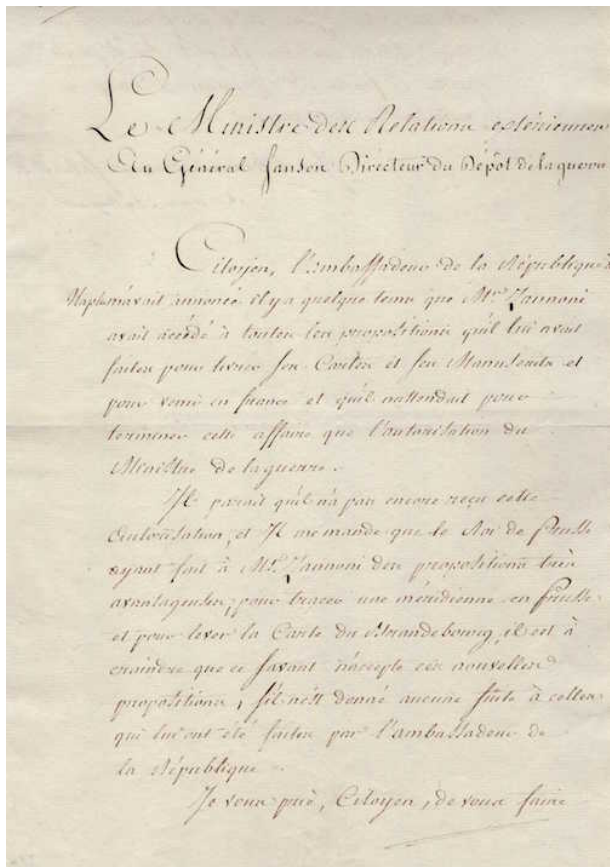 Le Ministre des Relations extérieures
Au Général Sanson Directeur du Dépôt de la guerre
Citoyen, l'ambassadeur de la République à
Naples m'avait annoncé il y a quelque tems que Mr. Zannoni
avait accédé à toutes les propositions qu'il lui avait
faites pour livrer ses Cartes et ses Manuscrits et
pour venir en france et qu'il n'attendait pour
terminer cette affaire que l'autorisation du
Ministre de la guerre.
Il parait qu'il n'a pas encore reçu cette
autorisation, et Il me mande que le Roi de Prusse
ayant fait à Mr. Zannoni des propositions très
avantageuses, pour tracer une méridienne en Prusse
et pour lever la Carte du Brandebourg, il est à
craindre que ce savant n'accepte ces nouvelles
propositions, s'il n'est donné aucune suite à celles
qui lui ont été faites par l'ambassadeur de
la République.
Je vous prie, Citoyen, de vous faire